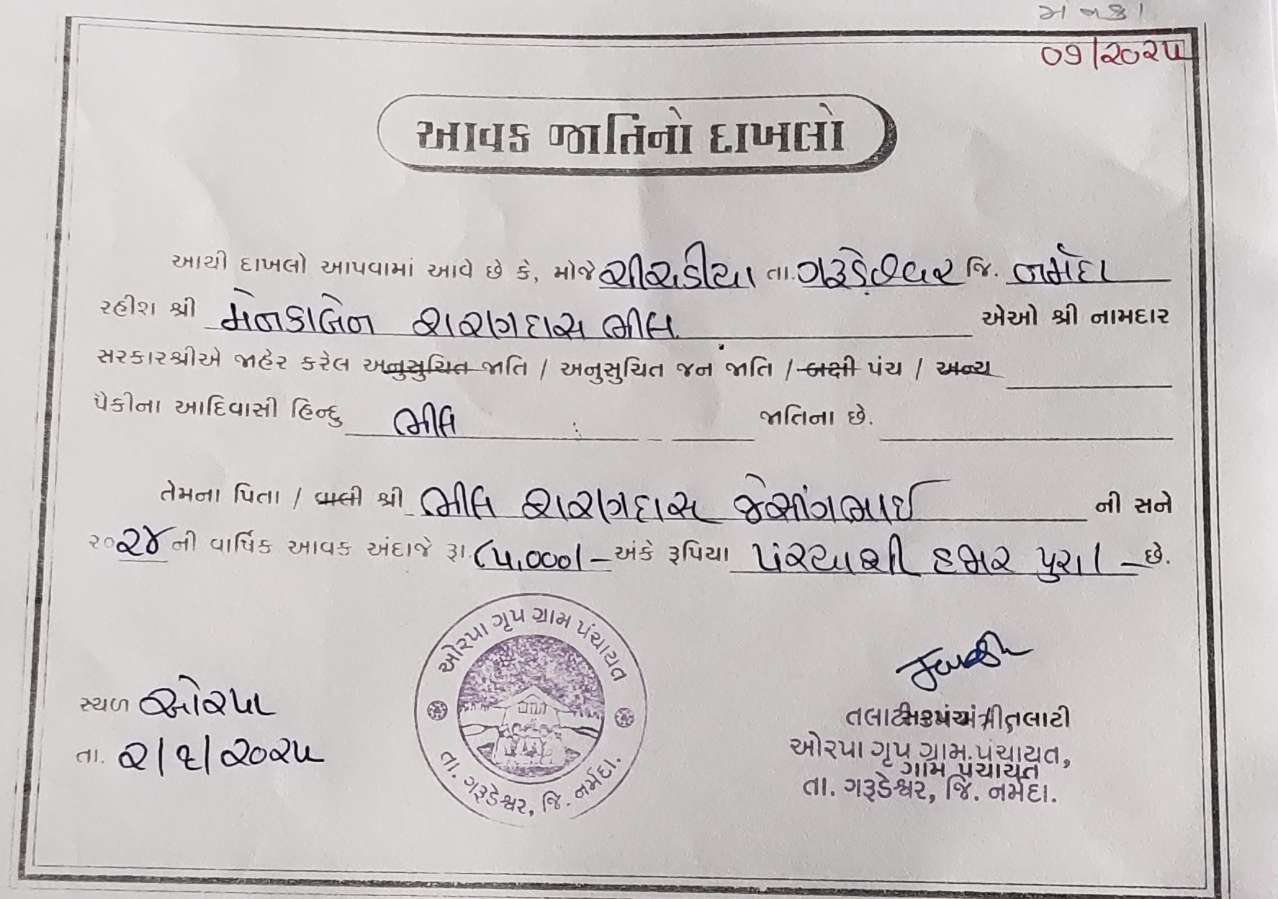 મેનકા
૦૧/૨૦૨૫
આવક જાતિનો દાખલો
આથી દાખલો આપવામાં આવે છે કે, મોજે ચીચડીયા તા. ગરૂડેશ્વર જિ. નર્મદા
રહીશ શ્રી મેનકાબેન શરાગદાસ ભીલ એઓ શ્રી નામદાર
સરકારશ્રીએ જાહેર કરેલ અનુસુચિત જાતિ / અનુસુચિત જન જાતિ / બક્ષી પંચ / અન્ય
પૈકીના આદિવાસી હિન્દુ ભીલ જાતિના છે.
તેમના પિતા / વાલી શ્રી ભીલ જેસાંગભાઈ ની સને
૨૦૨૪ ની વાર્ષિક આવક અંદાજે રૂા. ૮૫,૦૦૦/- અંકે રૂપિયા પંચ્યાશી હજાર પુરા/- છે.
ઓરપા ગૃપ ગ્રામ પંચાયત
તા. ગરૂડેશ્વર, જિ. નર્મદા.
સ્થળ ઓરપા
તા. ૨/૧/૨૦૨૫
ઓરપા ગૃપ ગ્રામ પંચાયત,
ગામ પંચાયત
તા. ગરૂડેશ્વર, જિ. નર્મદા.